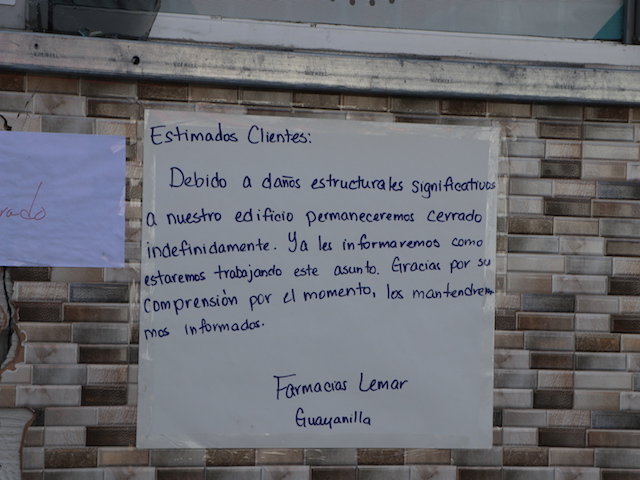 Estimados Clientes:
Debido a daños estructurales significativos
a nuestro edificio permaneceremos cerrado
indefinidamente. Ya les informaremos como
estaremos trabajando este asunto. Gracias por su
comprensión por el momento, los mantendre
mos informados.
Farmacias Lemar
Guayanilla